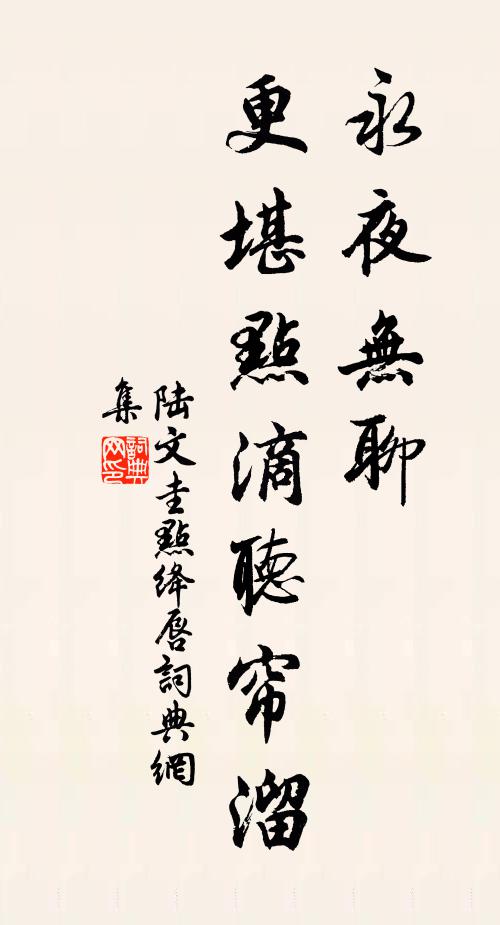 永夜無聊
更堪點滴聽帘溜
陆文圭點绛唇詞典網
集
詞典網印